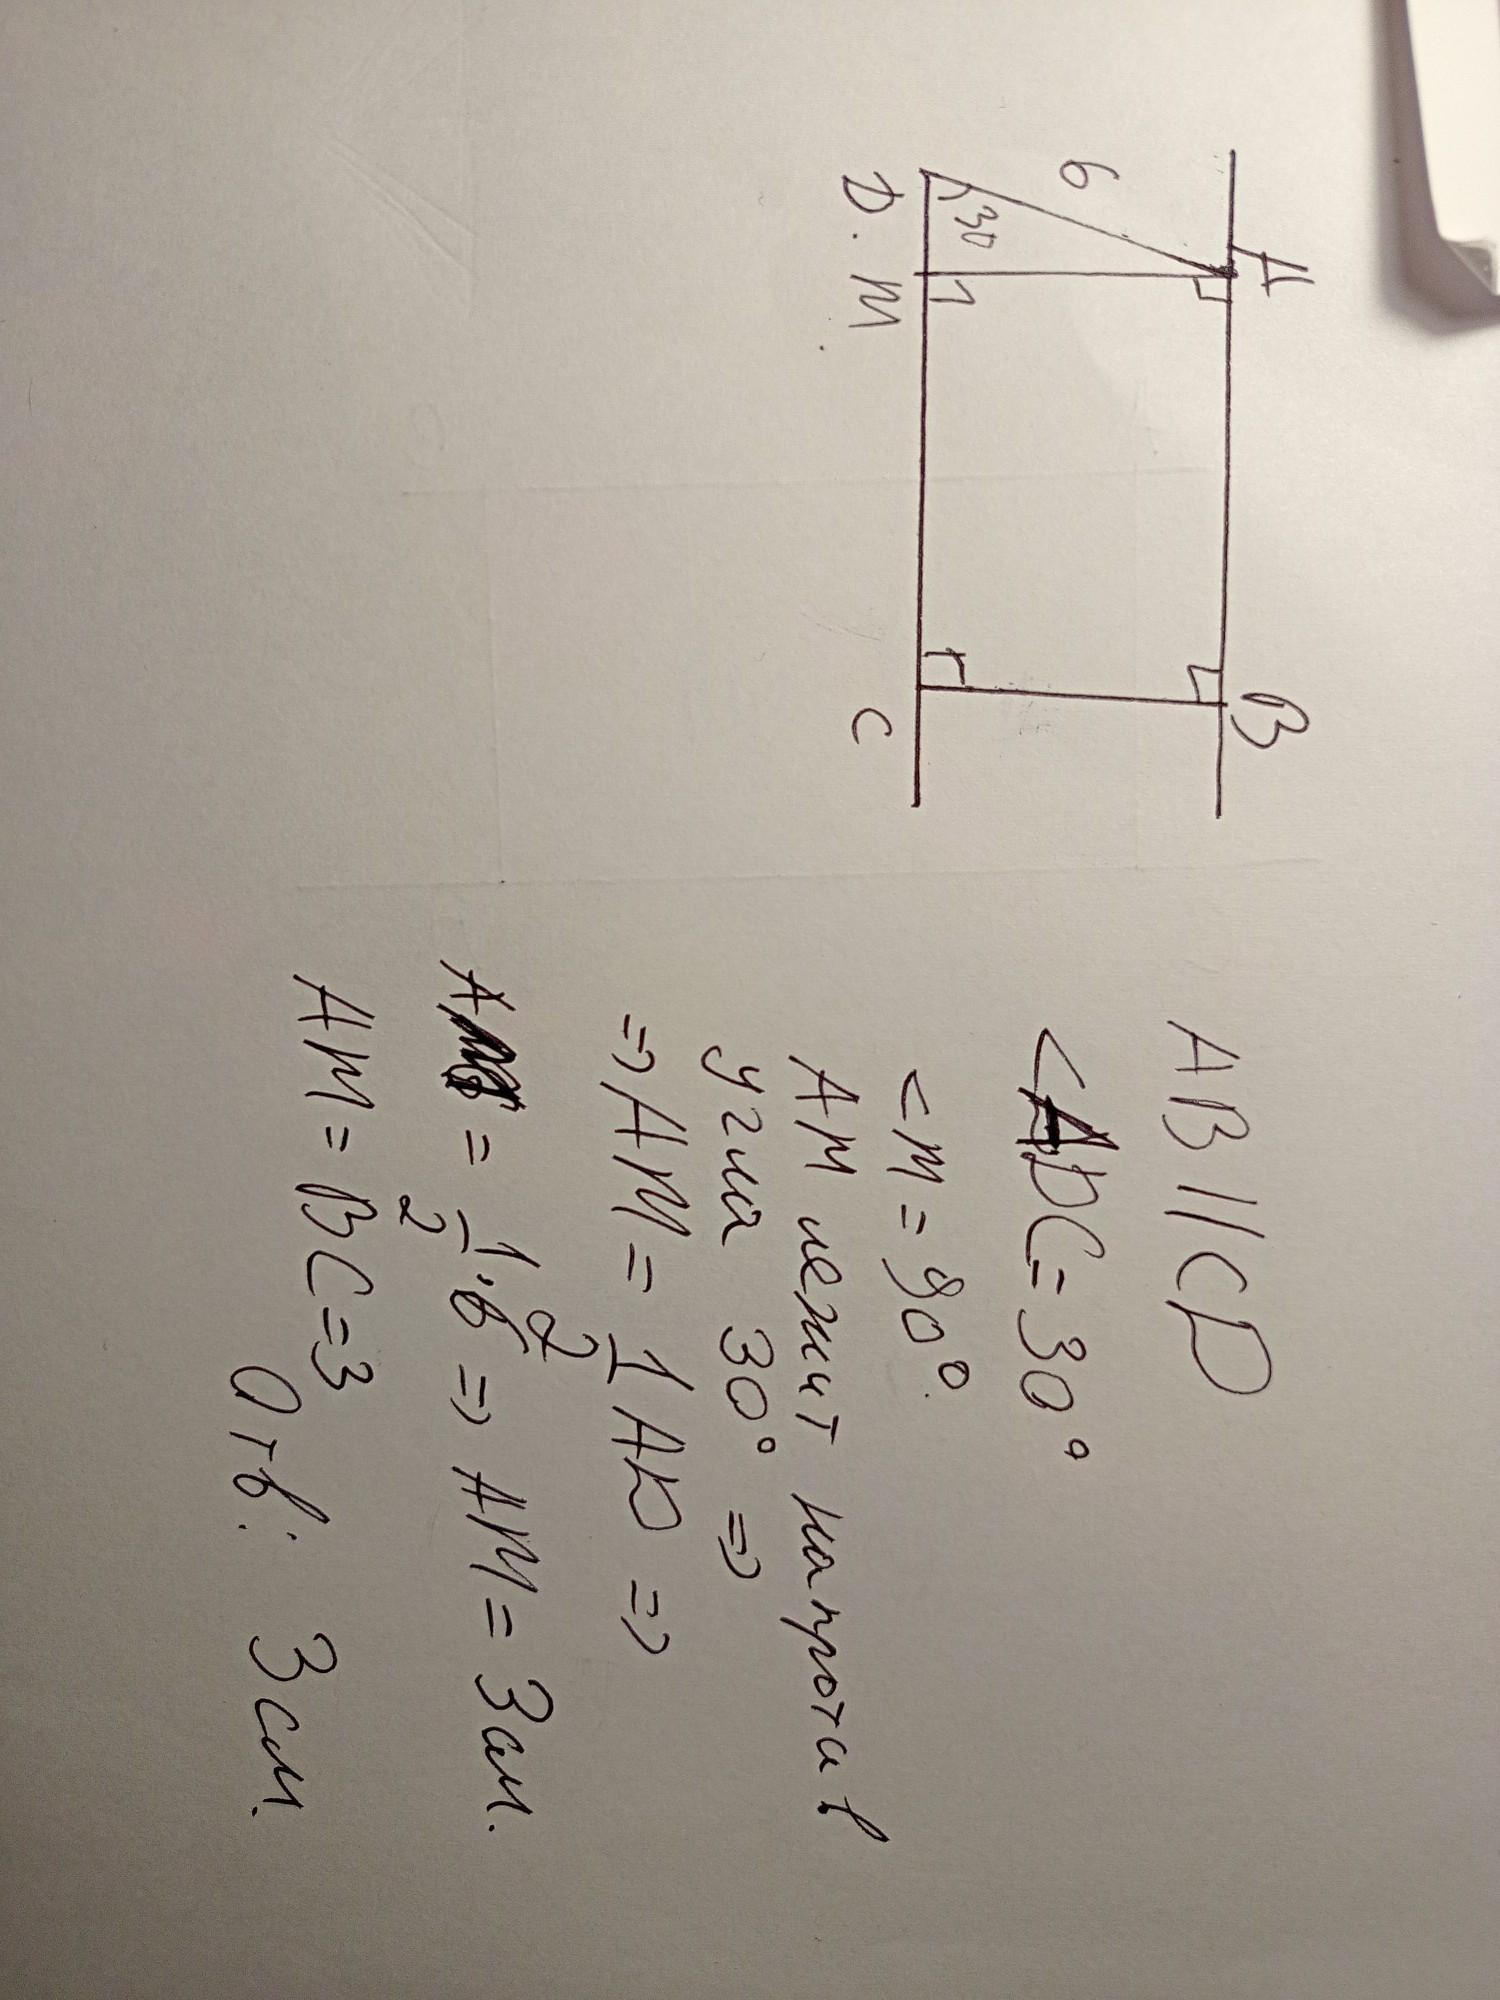 A B
6
30
D. M C
AB || CD
<ADC = 30°
<M = 90°.
AM лежит напротив
угла 30° =>
=> AM = 1/2 AD =>
= 1/2 · 6 => AM = 3 см.
AM = BC = 3
Отв: 3 см.